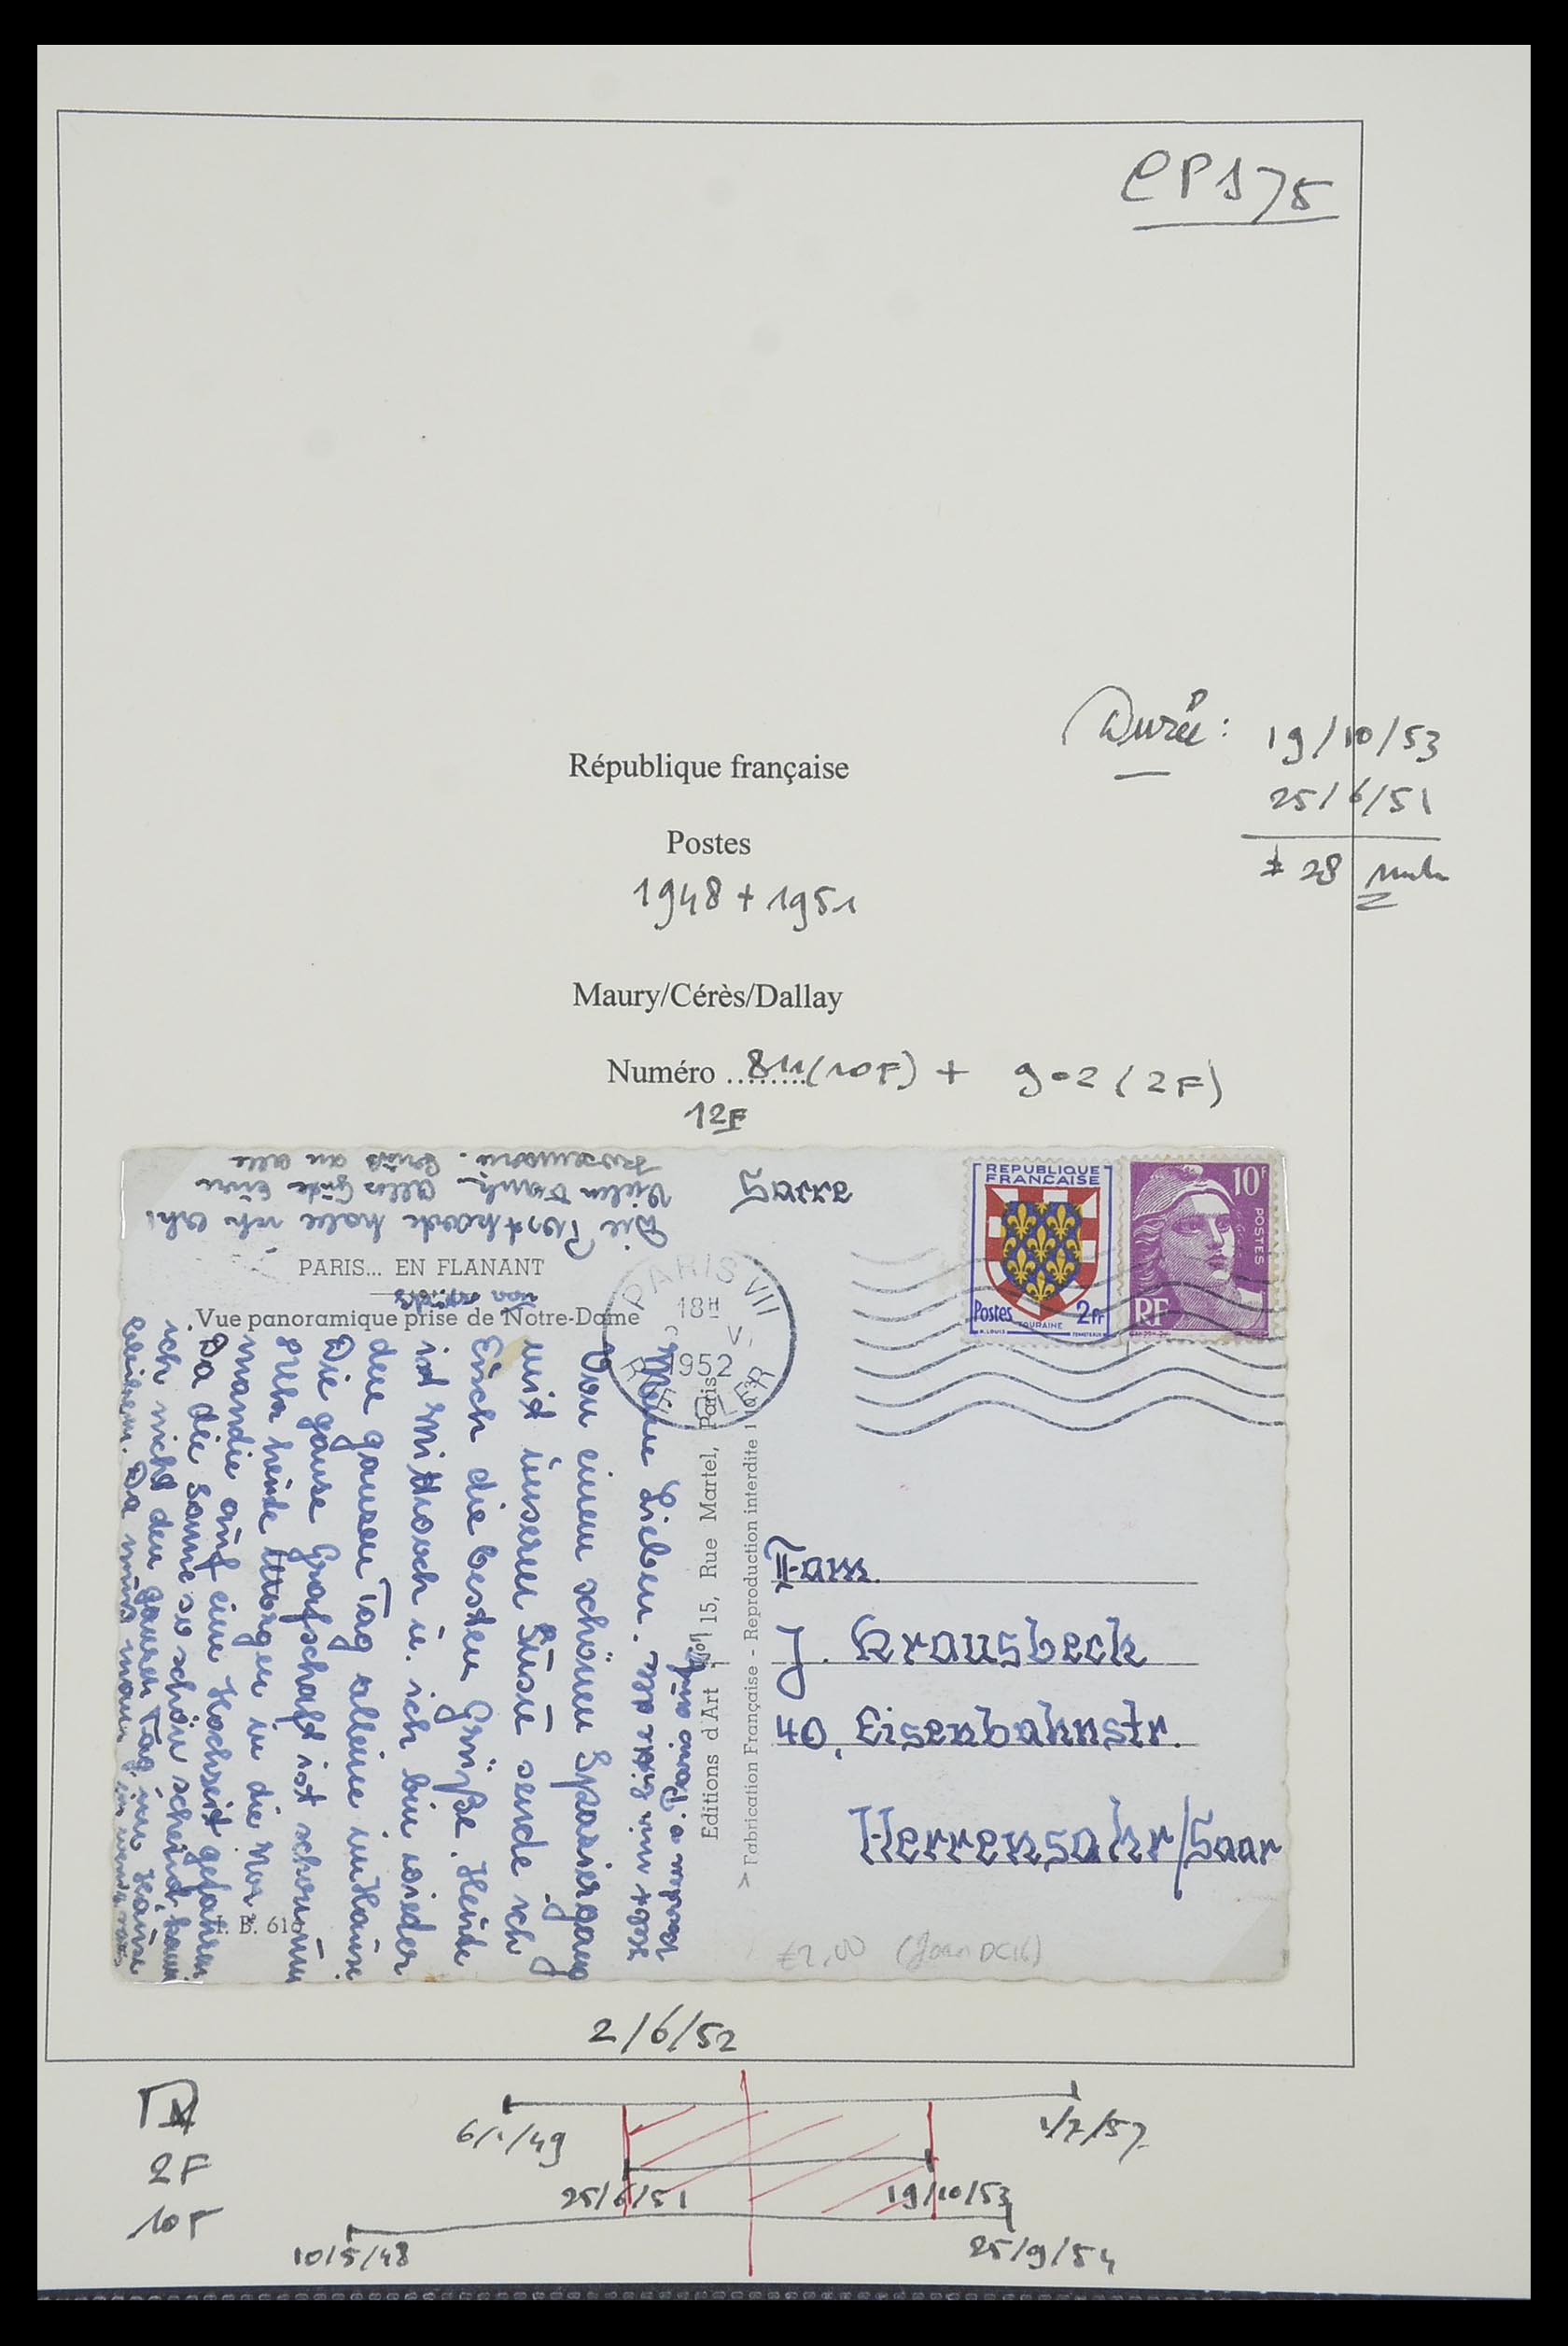 CP175
Durée : 19/10/53
25/6/51
± 28
République française
Postes
1948 + 1951
Maury/Cérès/Dallay
Numéro ........ 811 (10F) + 902 (2F)
12F
Die Postkarte habe ich
Vielen Dank. Alles Gute Eure
Rosemarie. Gruß an alle
Sarre
REPUBLIQUE
FRANÇAISE
Postes 2Fr
TOURAINE
10F
POSTES
RF
PARIS... EN FLANANT
Vue panoramique prise de Notre-Dame
PARIS VII
18H
1952
RUE CLER
Meine Lieben. Hebt mir bitte die
Karten v. Paris auf
Von einem schönen Spaziergang
mit unserer Susu sende ich
Euch die besten Grüße. Heute
ist Mittwoch u. ich bin wieder
den ganzen Tag alleine im Hause
Die ganze Grafschaft ist schon um
Uhr heute Morgen in die Nor
mandie auf eine Hochzeit gefahren
Da die Sonne so schön scheind, kann
ich nicht den ganzen Tag im Hause
bleiben. Da muss man
Editions d'Art 15, Rue Martel, Paris
> Fabrication Française - Reproduction interdite
I. B. 616
Fam.
J. Krausbeck
40, Eisenbahnstr.
Herrensohr/Saar
£2,00
2/6/52
2F
10F
6/1/49
1/7/57
25/6/51
19/10/53
10/5/48
25/9/54